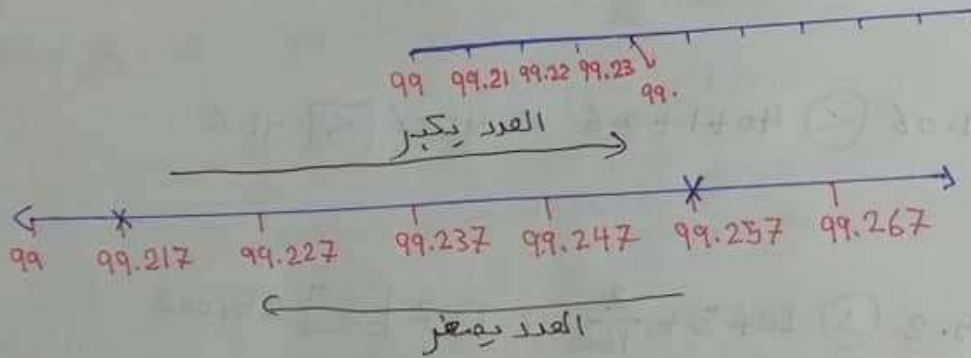 99 99.21 99.22 99.23
99.
العدد يكبر
99 99.217 99.227 99.237 99.247 99.257 99.267
العدد يصغر